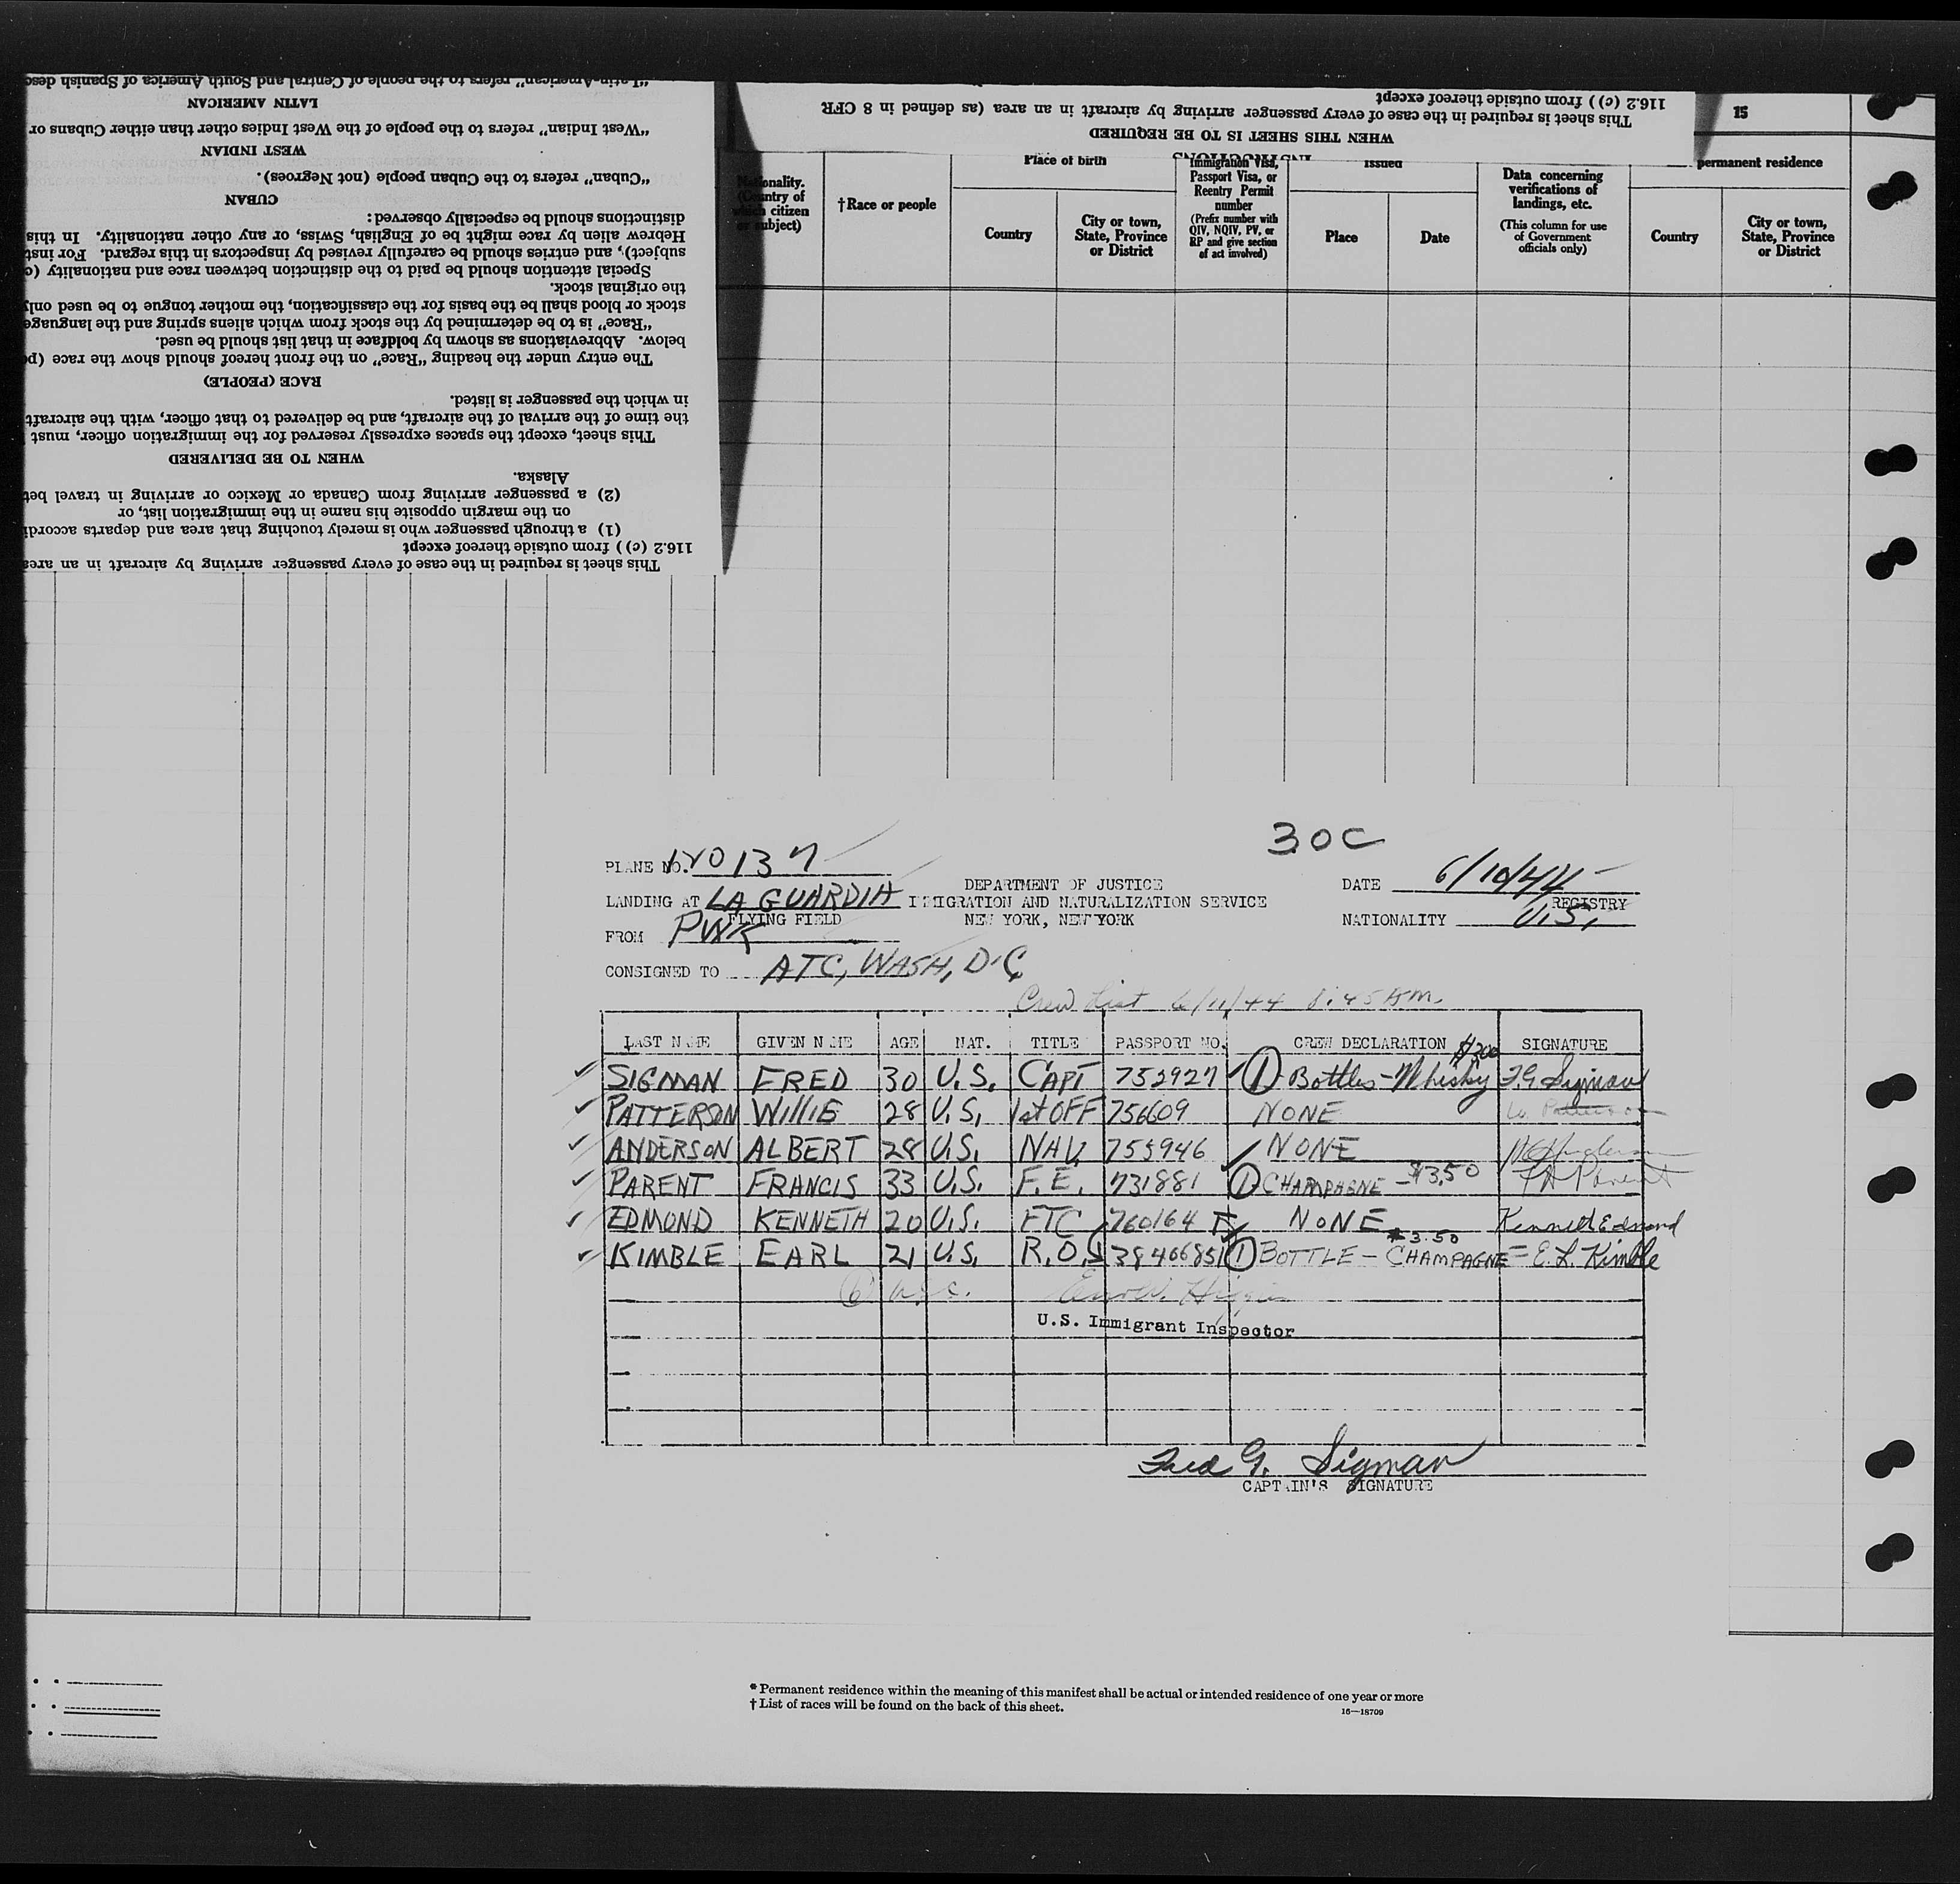 "Latin-American" refers to the people of Central and South America of Spanish
LATIN AMERICAN
"West Indian" refers to the people of the West Indies other than either Cubans or
WEST INDIAN
"Cuban" refers to the Cuban people (not Negroes).
CUBAN
distinctions should be especially observed:
Hebrew alien by race might be of English, Swiss, or any other nationality. In this
subject), and entries should be carefully revised by inspectors in this regard. For
Special attention should be paid to the distinction between race and nationality
the original stock.
stock or blood shall be the basis for the classification, the mother tongue to be used only
"Race" is to be determined by the stock from which aliens spring and the language
below. Abbreviations as shown by boldface in that list should be used.
The entry under the heading "Race" on the front hereof should show the race
RACE (PEOPLE)
in which the passenger is listed.
the time of the arrival of the aircraft, and be delivered to that officer, with the aircraft
This sheet, except the spaces expressly reserved for the immigration officer, must
WHEN TO BE DELIVERED
Alaska.
(2) a passenger arriving from Canada or Mexico or arriving in travel
on the margin opposite his name in the immigration list, or
(1) a through passenger who is merely touching that area and departs
116.2 (c)) from outside thereof except
This sheet is required in the case of every passenger arriving by aircraft in an area
116.2 (c)) from outside thereof except
This sheet is required in the case of every passenger arriving by aircraft in an area (as defined in 8 CFR
WHEN THIS SHEET IS TO BE REQUIRED
INSTRUCTIONS
15
Nationality. (Country of which citizen or subject)
†Race or people
Place of birth
Country
City or town, State, Province or District
Immigration Visa, Passport Visa, or Reentry Permit number
(Prefix number with QIV, NQIV, PV, or RP and give section of act involved)
Issued
Place
Date
Data concerning verifications of landings, etc.
(This column for use of Government officials only)
permanent residence
Country
City or town, State, Province or District
30C
PLANE NO. 120137
DATE 6/10/44
LANDING AT LA GUARDIA
FLYING FIELD
DEPARTMENT OF JUSTICE
IMMIGRATION AND NATURALIZATION SERVICE
NEW YORK, NEW YORK
REGISTRY
NATIONALITY U.S.
FROM PWK
CONSIGNED TO ATC, WASH, D.C.
Crew List 6/11/44 8:45 AM.
LAST NAME GIVEN NAME AGE NAT. TITLE PASSPORT NO. CREW DECLARATION SIGNATURE
SIGMAN FRED 30 U.S. CAPT 752927 ① Bottles - Whisky $3.00 F.G. Sigman
PATTERSON WILLIE 28 U.S. 1st OFF 756609 NONE W. Patterson
ANDERSON ALBERT 28 U.S. NAV. 755946 NONE
PARENT FRANCIS 33 U.S. F.E. 731881 ① CHAMPAGNE - $3.50 F A Parent
EDMOND KENNETH 20 U.S. FTC 760164 NONE Kenneth Edmond
KIMBLE EARL 21 U.S. R.O. 38466851 ① BOTTLE - CHAMPAGNE $3.50 = E. L. Kimble
⑥ U.S.C.
U.S. Immigrant Inspector
Fred G. Sigman
CAPTAIN'S SIGNATURE
* Permanent residence within the meaning of this manifest shall be actual or intended residence of one year or more
† List of races will be found on the back of this sheet.
16—18709